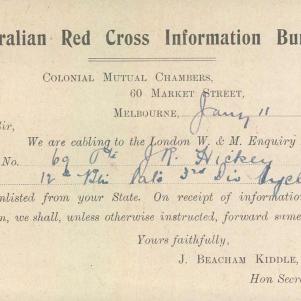 ralian Red Cross Information Bu
COLONIAL MUTUAL CHAMBERS,
60 MARKET STREET,
MELBOURNE, Jany 11
ir,
We are cabling to the London W. & M. Enquiry
No. 69 Pte J. R. Hickey
12th Btn late 3rd Div Cycl
nlisted from your State. On receipt of information
n, we shall, unless otherwise instructed, forward same
Yours faithfully,
J. BEACHAM KIDDLE,
Hon Secre